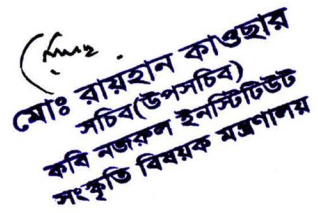 মোঃ রায়হান কাওছার
সচিব(উপসচিব)
কবি নজরুল ইনস্টিটিউট
সংস্কৃতি বিষয়ক মন্ত্রণালয়